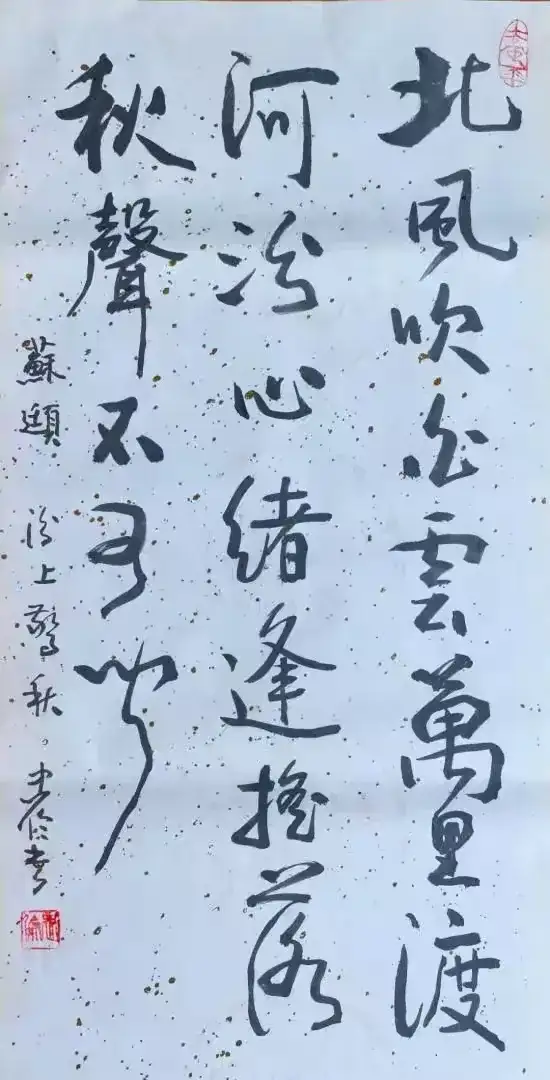 北風吹白雲萬里渡
河汾心緒逢搖落
秋聲不可聞
蘇頲 汾上驚秋。書